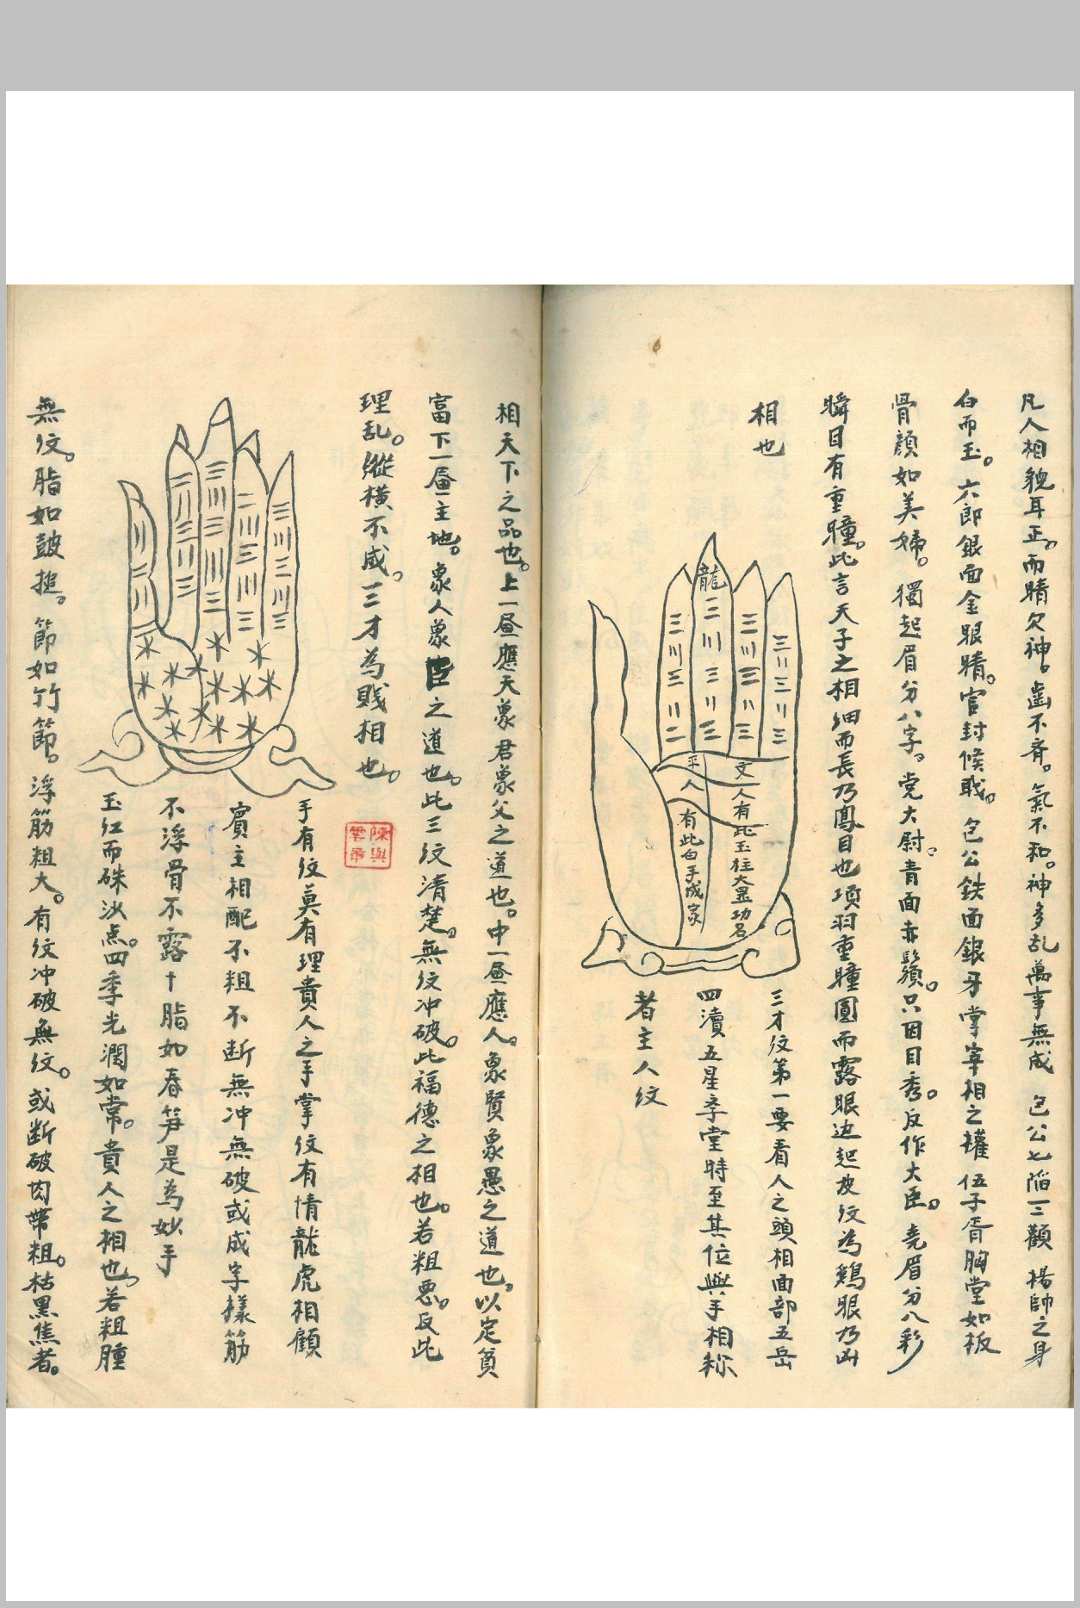 凡人相貌耳正。而睛欠神。齒不齊。氣不和。神多乱萬事無成 包公七陷三顴 楊帥之身
白而玉。六郎銀面金眼睛。官封候戝。包公鉄面銀牙掌宰相之權 伍子胥胸堂如板
骨顔如美婦。獨起眉分八字。党大尉。青面赤鬚。只因目秀。反作大臣。堯眉分八彩
瞬目有重瞳。此言天子之相細而長乃鳳目也項羽重瞳圓而露眼边起皮纹為鷄眼乃凶
相也
龍
三川三川二
二川三川三
三川三川三
三川三川三
平人
文
有此白手成家
人有此玉柱大显功名
三才纹第一要看人之頭相面部五岳
四瀆五星李堂時至其位與手相称
者主人纹
相天下之品也。上一昼應天象君象父之道也。中一昼應人。象賢象愚之道也。以定貧
富下一昼主地。象人象臣之道也。此三纹清楚。無纹冲破。此福德之相也。若粗悪。反此
理乱。縱横不咸。三才為贱相也。
陳興
手有纹莫有理貴人之手掌纹有情龍虎相顧
賓主相配不粗不断無冲無破或成字樣筋
不浮骨不露十脂如春笋是為妙手
玉红而硃沙点。四季光潤如常。貴人之相也。若粗腫
無纹。脂如皷搥。節如竹節。浮筋粗大。有纹冲破無纹。或断破肉帶粗。枯黑焦者。